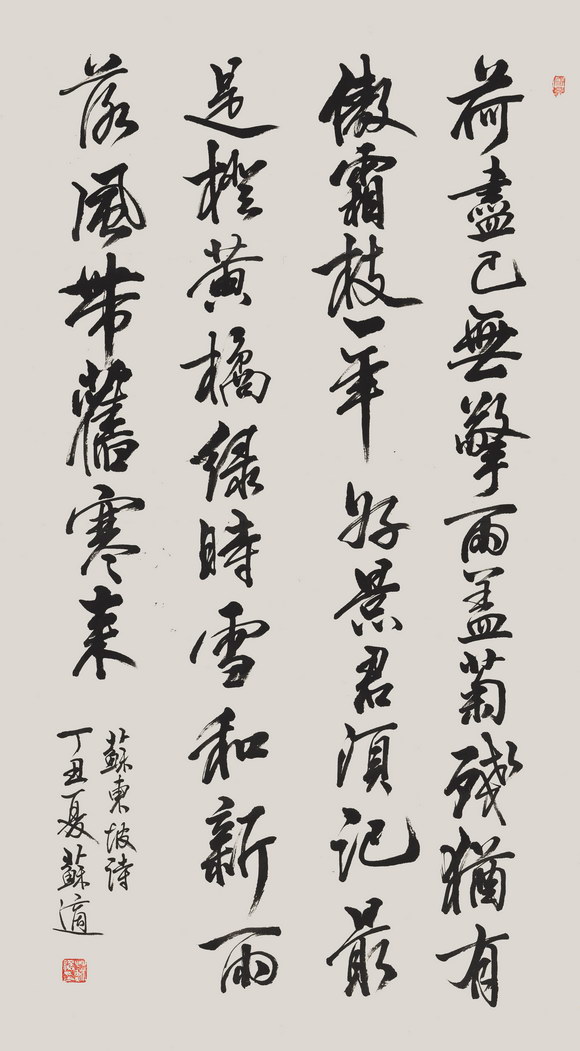 荷盡已無擎雨盖菊殘猶有
傲霜枝一年好景君須記最
是橙黄橘绿時雪和新雨
落風帶舊寒来
蘇東坡詩
丁丑夏蘇適